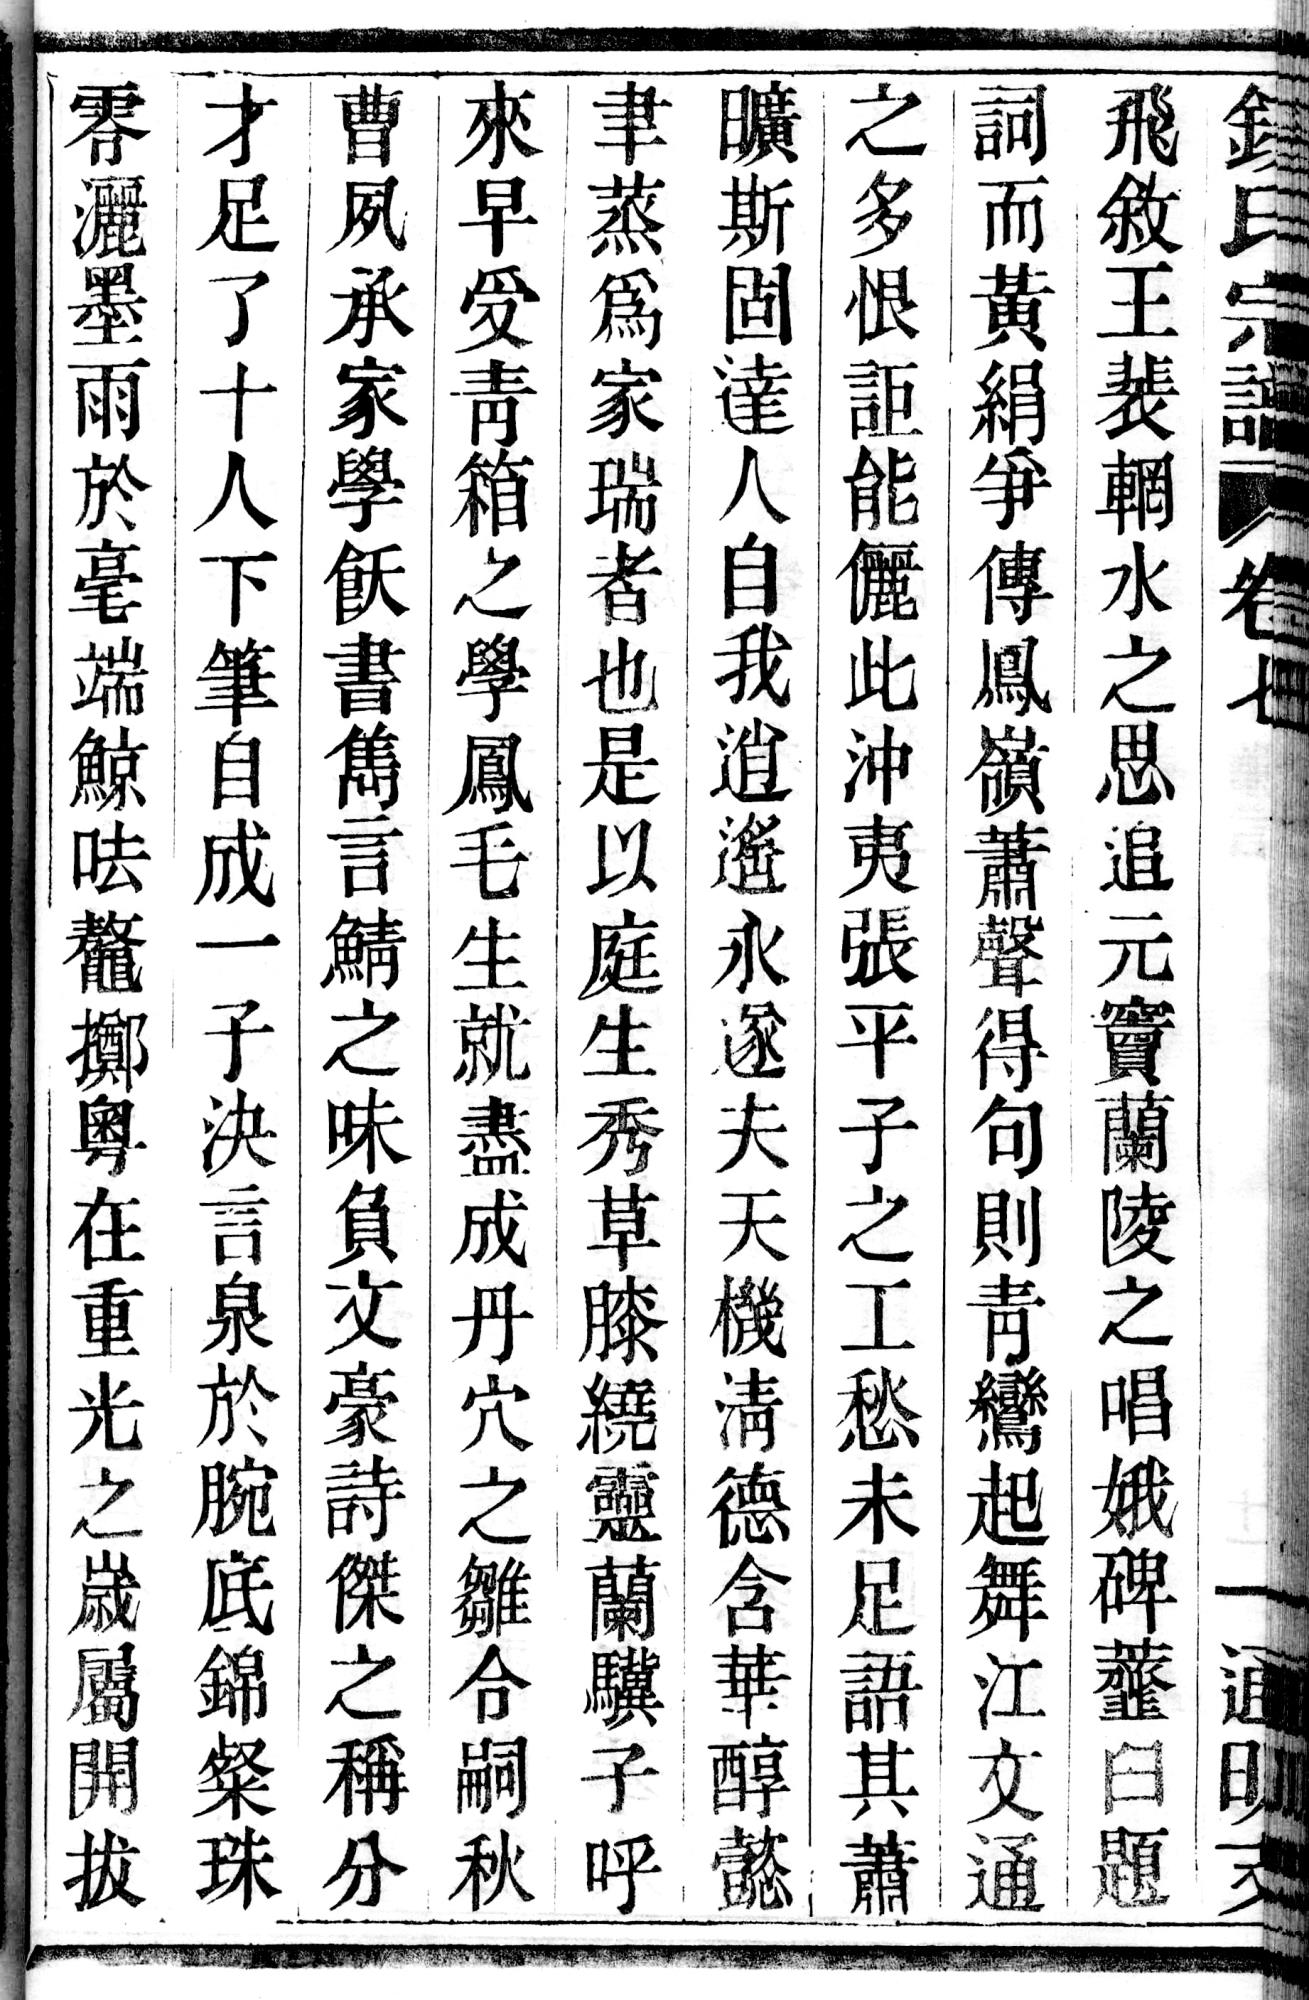 氏宗譜 卷七 一 通明支
飛敘王裴輞水之思追元竇蘭陵之唱娥碑虀臼題
詞而黃絹爭傳鳳嶺蕭聲得句則青鸞起舞江文通
之多恨詎能儷此沖夷張平子之工愁未足語其蕭
曠斯固達人自我逍遙永遂夫天機淸德含華醇懿
聿蒸爲家瑞者也是以庭生秀草膝繞靈蘭驥子呼
來早受靑箱之學鳳毛生就盡成丹穴之雛合嗣秋
曹夙承家學飫書雋言鯖之味負文豪詩傑之稱分
才足了十人下筆自成一子決言泉於腕底錦粲珠
零灑墨雨於毫端鯨呿鼇擲粵在重光之歲屬開拔